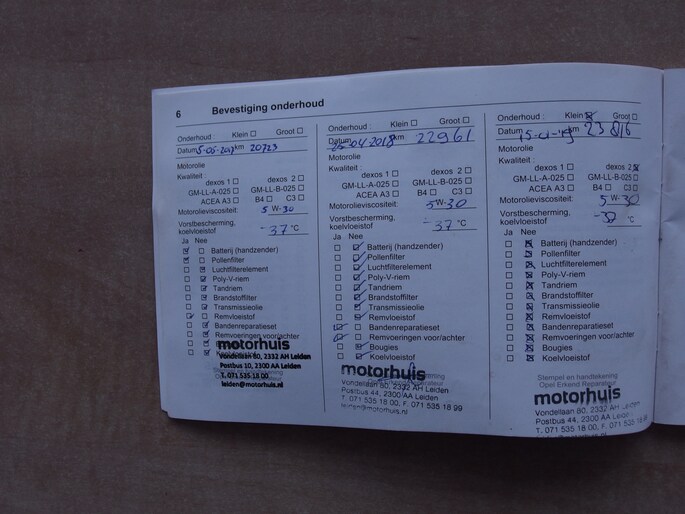 6 Bevestiging onderhoud
Onderhoud : Klein Groot
Datum km 20723
Motorolie
Kwaliteit :
dexos 1 dexos 2
GM-LL-A-025 GM-LL-B-025
ACEA A3 B4 C3
Motorolieviscositeit: 5 W-30
Vorstbescherming,
koelvloeistof -37 °C
Ja Nee
Batterij (handzender)
Pollenfilter
Luchtfilterelement
Poly-V-riem
Tandriem
Brandstoffilter
Transmissieolie
Remvloeistof
Bandenreparatieset
Remvoeringen voor/achter
motorhuis
Vondellaan 80, 2332 AH Leiden
Postbus 10, 2300 AA Leiden
T. 071 535 18 00
leiden@motorhuis.nl
Onderhoud : Klein Groot
Datum 04 2018 km 22961
Motorolie
Kwaliteit :
dexos 1 dexos 2
GM-LL-A-025 GM-LL-B-025
ACEA A3 B4 C3
Motorolieviscositeit: 5 W-30
Vorstbescherming,
koelvloeistof -37 °C
Ja Nee
Batterij (handzender)
Pollenfilter
Luchtfilterelement
Poly-V-riem
Tandriem
Brandstoffilter
Transmissieolie
Remvloeistof
Bandenreparatieset
Remvoeringen voor/achter
Bougies
Koelvloeistof
motorhuis
Vondellaan 80, 2332 AH Leiden
Postbus 44, 2300 AA Leiden
T. 071 535 18 00, F. 071 535 18 99
leiden@motorhuis.nl
Onderhoud : Klein Groot
Datum km 23 816
Motorolie
Kwaliteit :
dexos 1 dexos 2
GM-LL-A-025 GM-LL-B-025
ACEA A3 B4 C3
Motorolieviscositeit: 5 W-30
Vorstbescherming,
koelvloeistof °C
Ja Nee
Batterij (handzender)
Pollenfilter
Luchtfilterelement
Poly-V-riem
Tandriem
Brandstoffilter
Transmissieolie
Remvloeistof
Bandenreparatieset
Remvoeringen voor/achter
Bougies
Koelvloeistof
Stempel en handtekening
Opel Erkend Reparateur
motorhuis
Vondellaan 80, 2332 AH Leiden
Postbus 44, 2300 AA Leiden
T. 071 535 18 00, F. 071 535 18 99